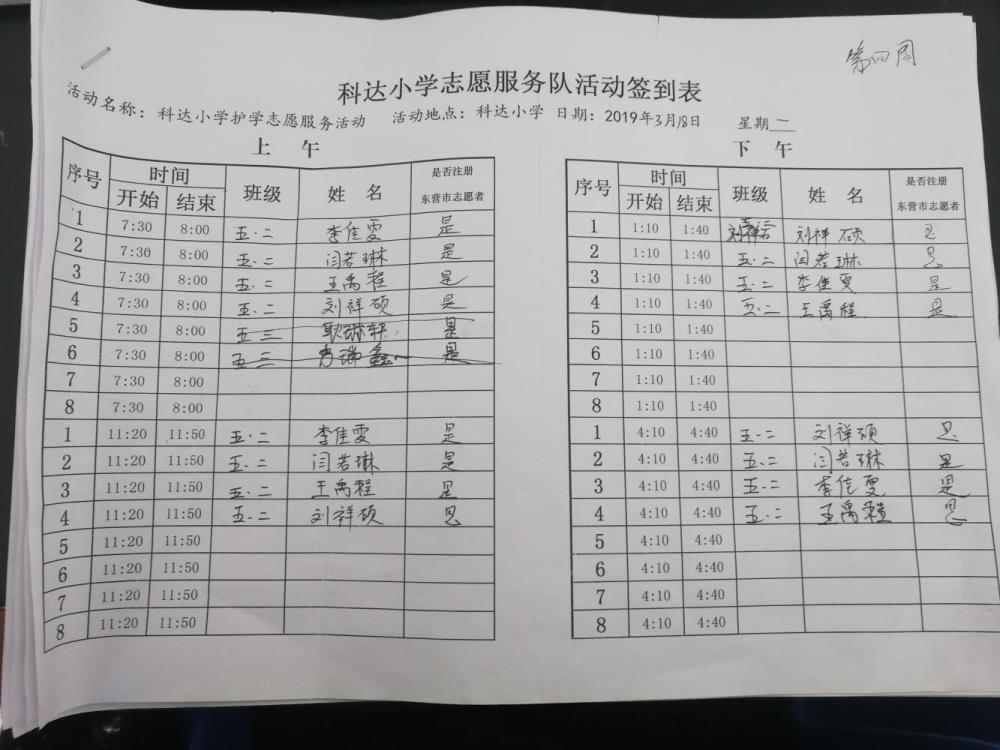 第四周
科达小学志愿服务队活动签到表
活动名称：科达小学护学志愿服务活动 活动地点：科达小学 日期：2019年3月18日 星期二
上 午
序号 时间 班级 姓 名 是否注册东营市志愿者
开始 结束
1 7:30 8:00 五.二 李佳雯 是
2 7:30 8:00 五.二 闫若琳 是
3 7:30 8:00 五.二 王禹程 是
4 7:30 8:00 五.二 刘祥硕 是
5 7:30 8:00 五三 耿琳轩 是
6 7:30 8:00 五三 瑞鑫 是
7 7:30 8:00
8 7:30 8:00
1 11:20 11:50 五.二 李佳雯 是
2 11:20 11:50 五.二 闫若琳 是
3 11:20 11:50 五.二 王禹程 是
4 11:20 11:50 五.二 刘祥硕 是
5 11:20 11:50
6 11:20 11:50
7 11:20 11:50
8 11:20 11:50
下 午
序号 时间 班级 姓 名 是否注册东营市志愿者
开始 结束
1 1:10 1:40 刘祥硕 是
2 1:10 1:40 五.二 闫若琳 是
3 1:10 1:40 五.二 李佳雯 是
4 1:10 1:40 五.二 王禹程 是
5 1:10 1:40
6 1:10 1:40
7 1:10 1:40
8 1:10 1:40
1 4:10 4:40 五.二 刘祥硕 是
2 4:10 4:40 五.二 闫若琳 是
3 4:10 4:40 五.二 李佳雯 是
4 4:10 4:40 五.二 王禹程 是
5 4:10 4:40
6 4:10 4:40
7 4:10 4:40
8 4:10 4:40